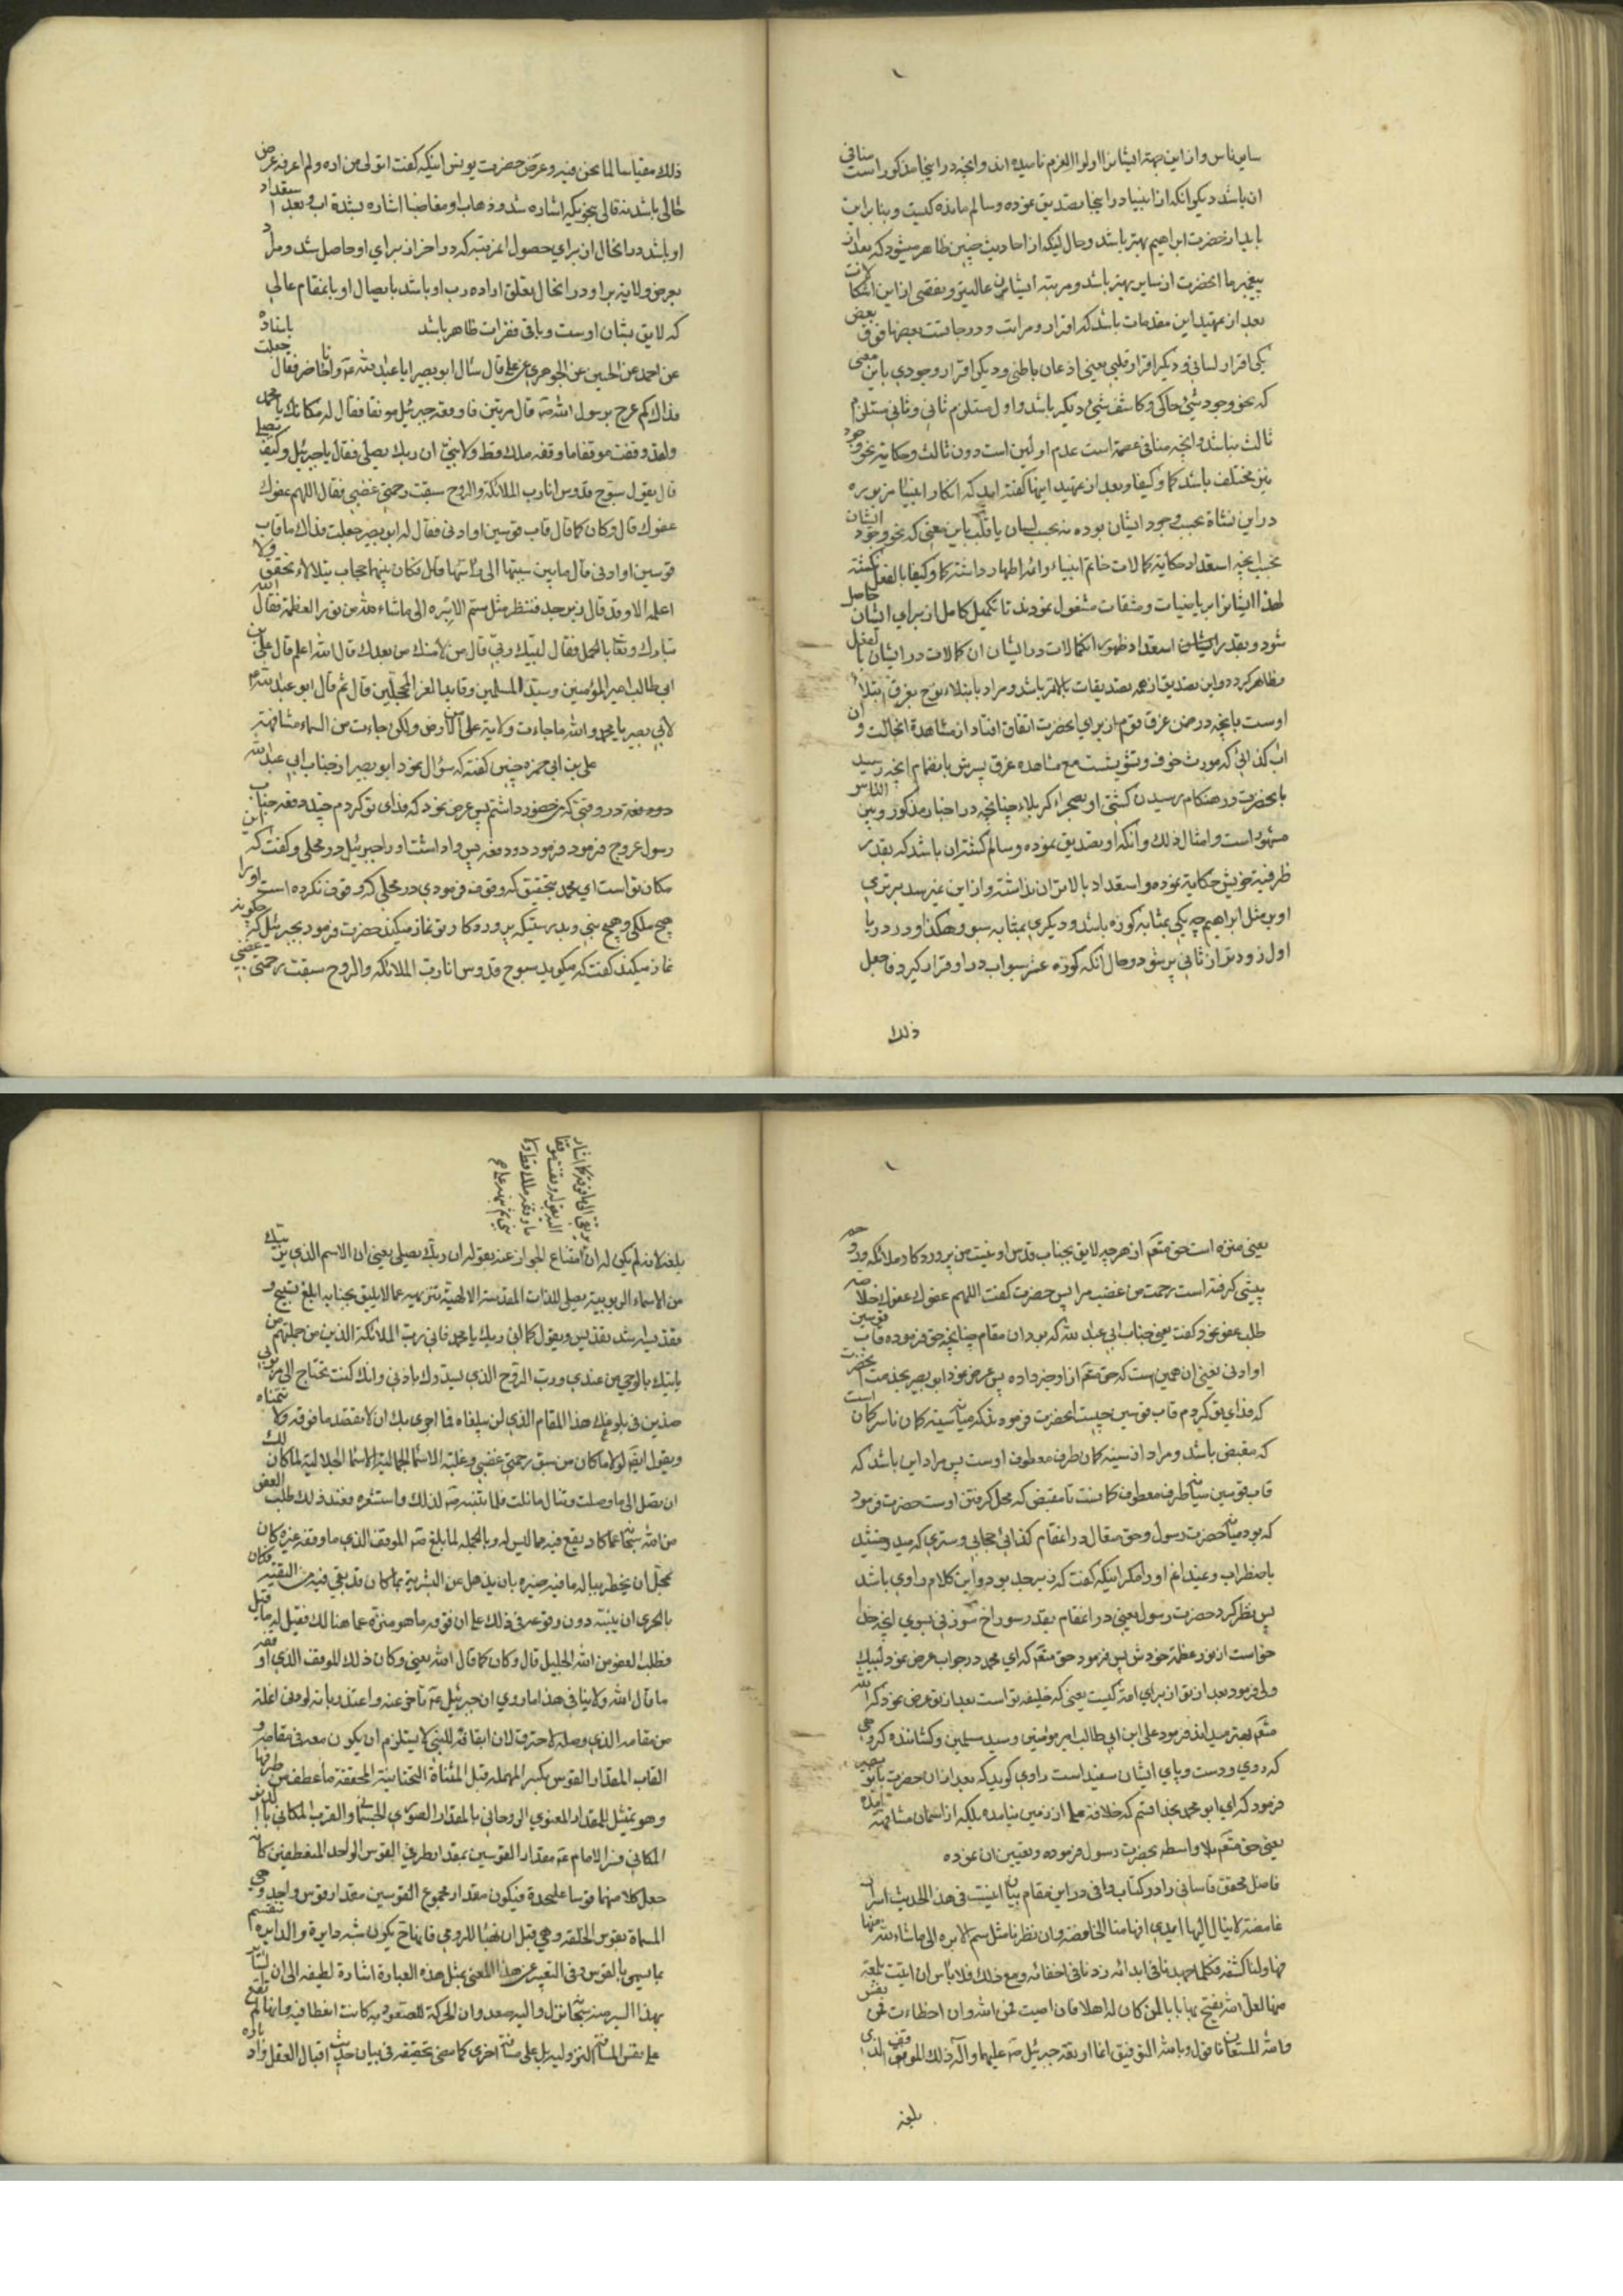 ساير ناس و از اين جهة ايشانرا اولوا العزم ناميده اند و انچه در اينجا مذكور است منافى
ان باشد ديكر انكه از انبيا در اينجا تصديق نموده و سالم مانده كيست و بنا براين
بايد از حضرت ابراهيم بهتر باشد و حال اينكه از احاديث چنين ظاهر ميشود كه بعد از
پيغمبر ما انحضرت از ساير بهتر باشد و مرتبه ايشان عاليتر و تفصى از اين اشكالات
بعد از تمهيد اين مقدمات باشد كه اقرار و مراتب و درجاتست بعضها فوق بعض
يكى اقرار لسانى و ديكر اقرار قلبى يعنى اذعان باطنى و ديكر اقرار وجودى باين معنى
كه نحو وجود شئ حاكى و كاشف شئ ديكر باشد و اول مستلزم ثانى و ثانى مستلزم
ثالث نباشد و انچه منافى عصمة است عدم اولين است دون ثالث و حكاية نحو وجود
نيز مختلف باشد كما و كيفا و بعد از تمهيد اينها كفته ايد كه انكار انبياء مزبوره
در اين نشاة بحسب وجود ايشان بوده نه بحسب لسان يا قلب باين معنى كه نحو وجود ايشان
بحسب انچه استعداد حكاية كمالات خاتم انبياء و ائمه اطهار داشته كما و كيفا بالفعل نكشته
لهذا ايشانرا برياضيات و مشقات مشغول نمودند تا تكميل كامل از براى ايشان حاصل
شود و بقدر استعداد ظهور انكمالات در ايشان ان كمالات در ايشان بالفعل
ظاهر كردد و اين تصديق از همه تصديقات بالاتر باشد و مراد بابتلاء نوح بغرق ابتلاء
اوست بانچه در ضمن غرق قوم از براى انحضرت اتفاق افتاد از مشاهده انحالت و ان
اب كذائى كه مورث خوف و تشويشست مع مشاهده غرق پسرش بانضمام انچه رسيد
بانحضرت در هنكام رسيدن كشتى او بصحراء كربلاء چنانچه در اخبار مذكور و بين الناس
مشهور است و امثال ذلك و انكه او تصديق نموده و سالم كشته ان باشد كه بقدر
ظرفية خويش حكاية نموده و استعداد بالاتر ان نداشته و از اين نميرسد برترى
او بر مثل ابراهيم چه يكى بمثابه كوزه باشد و ديكرى بمثابه سبو و هكذا و در دريا
اول زودتر از ثانى پر شود و حال انكه كوزه عشر سبو اب در او قرار كيرد فاجعل
ذلك
ذلك مقياسا لما نحن فيه و غرض حضرت يونس اينكه كفت اتولى من اره و لم اعرفه عرض
حالى باشد نه قالى بنحويكه اشاره شد و ذهاب او مغاضبا اشاره بشدة اب و بعد استعداد
او باشد در انحال از براى حصول انمرتبه كه در اخر از براى او حاصل شد و مراد
بعرض ولايه بر او در انحال تعلق اراده رب او باشد بايصال او بانمقام عالى
كه لايق بشان اوست و باقى فقرات ظاهر باشد باسناده
عن احمد عن الحسين عن الجوهرى عن على قال سئال ابو بصير ابا عبد الله ع و انا حاضر فقال جعلت
فداك كم عرج برسول الله ص قال مرتين فاوقفه جبرئيل موقفا فقال له مكانك يا محمد
و لقد وقفت موقفا ما وقفه ملك قط و لا نبى ان ربك يصلى فقال يا جبرئيل و كيف يصلى
قال يقول سبوح قدوس انا رب الملائكة و الروح سبقت رحمتى غضبى فقال اللهم عفوك
عفوك قال و كان كما قال قاب قوسين او ادنى فقال له ابو بصير جعلت فداك ما قاب
قوسين او ادنى قال ما بين سيتها الى راسها قال فكان بينهما حجاب يتلالاء بخفق و لا
اعلمه الا و قد قال زبرجد فنظر فى مثل سم الابره الى ما شاء الله من نور العظمة فقال الله
تبارك و تعالى يا محمد فقال لبيك ربى قال من لامتك من بعدك قال الله اعلم قال على بن
ابى طالب امير المؤمنين و سيد المسلمين و قايد الغر المحجلين قال ثم قال ابو عبد الله ع
لابى بصير يا با محمد و الله ما جاءت ولاية على من الارض و لكن جاءت من السماء مشافهة
على بن ابى حمزه چنين كفته كه سؤال نمود ابو بصير از جناب ابى عبد الله
در وقتى كه من حضور داشتم پس عرض نمود كه فداى تو كردم چند دفعه جناب
رسول عروج فرمود فرمود دو دفعه پس وا داشت او را جبرئيل در محلى و كفت كه اين
مكان تو است اى محمد بتحقيق كه وقوف فرمودى در محلى كه وقوف نكرده است او را
هيچ ملكى و هيچ نبى و بدرستيكه پروردكار تو نماز ميكند حضرت فرمود بجبرئيل كه چكونه
نماز ميكند كفت كه ميكويد سبوح قدوس انا رب الملائكه و الروح سبقت رحمتى غضبى
يعنى منزه است حق متعم از هرچه لايق بجناب قدس او نيست من پروردكار ملائكه و روحم
پيشى كرفته است رحمت من غضب مرا پس حضرت كفت اللهم عفوك عفوك خلاصه
طلب عفو نمود كفت يعنى جناب ابى عبد الله كه بود ان مقام چنانچه حق فرموده قاب قوسين
او ادنى يعنى ان همين است كه حق متعم از او خبر داده پس عرض نمود ابو بصير بخدمت انحضرت
كه فداى تو كردم قاب قوسين چيست انحضرت فرمود بدكه ميانه سيته كمان تا سر كمان است
كه مقبض باشد و مراد از سيته كمان طرف معطوف اوست پس مراد اين باشد كه
قاب قوسين ميانه طرف معطوف كمانست تا مقبض كه محل كرفتن اوست حضرت فرمود
كه بود ميانه حضرت رسول و حق متعال در انمقام كذائى حجابى و سترى كه ميدرخشيد
باضطراب و نميدانم او را مكر اينكه كفت كه زبرجد بود و اين كلام راوى باشد
پس نظر كرد حضرت رسول يعنى در انمقام بقدر سوراخ سوزنى بسوى انچه خدا
خواست از نور عظمة خودش پس فرمود حق متعم كه اى محمد در جواب عرض نمود لبيك
ربى فرمود بعد از تو از براى امة كيست يعنى كه خليفه تو است بعد از تو عرض نمود كه الله
متعم بهتر ميداند فرمود على ابن ابى طالب امير مؤمنين و سيد مسلمين و كشاننده كروهى
كه روى و دست و پاى ايشان سفيد است راوى كويد كه بعد از ان حضرت بابو بصير
فرمود كه اى ابو محمد بخدا قسم كه خلافة على از زمين نيامده بلكه از اسمان مشافهة امده
يعنى حق متعم بلا واسطه بحضرت رسول فرموده و تعيين ان نموده
فاضل محقق قاسانى را در كتاب وافى در اين مقام بيان اينست فى هذا الحديث اسرار
غامضة لا ينال اليها ايدى افهامنا الخافضة و ان نظرنا مثل سم الابره الى ما شاء الله منها
فيها و لنا كشفه فكلما جهدنا فى ابدائه زدنا فى اخفائه و مع ذلك فلا باس ان اتيت بلمعة
منها لعل الله يفتح بها بابا لمن كان له اهلا فان اصبت فمن الله و ان اخطاءت فمن نفسى
و الله المستعان فاقول و بالله التوفيق انما اوقفه جبرئيل ص عليهما و اله ذلك الموقف الذى
بلغه
بلغه لانه لم يكن له امتناع الجواز عنه بقوله ان ربك يصلى يعنى ان الاسم الذى يربيك
من الاسماء الربوبيية يصلى للذات المقدسة الالهية بتنزيهه عما لا يليق بجنابه ابلغ تسبيح و
تقديسه اشد تقديس و يقول كما انى ربك يا محمد فانى رب الملائكة الذين من جملتهم من
ياتيك بالوحى من عندى و رب الروح الذى يسددك باذنى و انك كنت تحتاج الى
هذين فى بلوغك هذا المقام الذى لن يبلغاه فما احرى بك ان لا تقصد ما فوقه و لا تتمناه
و يقول ايضا لولا ما كان من سبق رحمتى غضبى و غلبة الاسماء الجمالية الاسماء الجلالية لما كان لك
ان تصل الى ما وصلت و تنال ما نلت فلما تنبه ص لذلك و استشعره فعند ذلك طلب العفو
من الله سبحانه عما كاد يقع فيه مما ليس له و بالجملة لما بلغ ص الموقف الذى ما وقفه غيره كان
بمحل ان يخطر بباله ما فيه ضيره بان يذهل عن البشرية بما كان قد بقى فيه من البقية فكان
بالحرى ان ينبه دون وقوعه فى ذلك على ان فوقه ما هو منزه عما هنالك فقيل له ما قيل
فطلب العفو من الله الجليل قال و كان كما قال الله يعنى و كان ذلك الموقف الذى اوقفه
ما قال الله و لا ينافى هذا ما روى ان جبرئيل ع تاخر عنه و اعتذر بانه لو دنى انملة
من مقامه الذى وصله لاحترق لان ايقافه للنبى لا يستلزم ان يكون معه فى مقامه و
القاب المقدار القوس بكسر المهملة قبل المثناة التحتانية المخففة ما عطف من طرفها
و هو تمثيل للمقدار المعنوى الروحانى بالمقدار الصورى الجسمانى و القرب المكانى بالدنو
المكانى فسر الامام ع مقدار القوسين بمقدار طرفى القوس الواحد المنعطفين كانه
جعل كلا منهما قوسا عليحدة فيكون مقدار مجموع القوسين مقدار قوس واحد و هى
المسماة بقوس الحلقه و هى قبل ان تهيأ للرمى فانها ح يكون شبه دايرة و الدايرة تنقسم
بما يسمى بالقوس و فى التعبير عن هذا المعنى بمثل هذه العبارة اشارة لطيفه الى ان السائر
بهذا السير منه سبحانه نزل و اليه صعد و ان الحركة الصعودية كانت انعطافية و انها لم تقع
على نفس المسافة النزولية بل على مسافة اخرى كما مضى تحقيقه فى بيان حديث اقبال العقل و ادباره